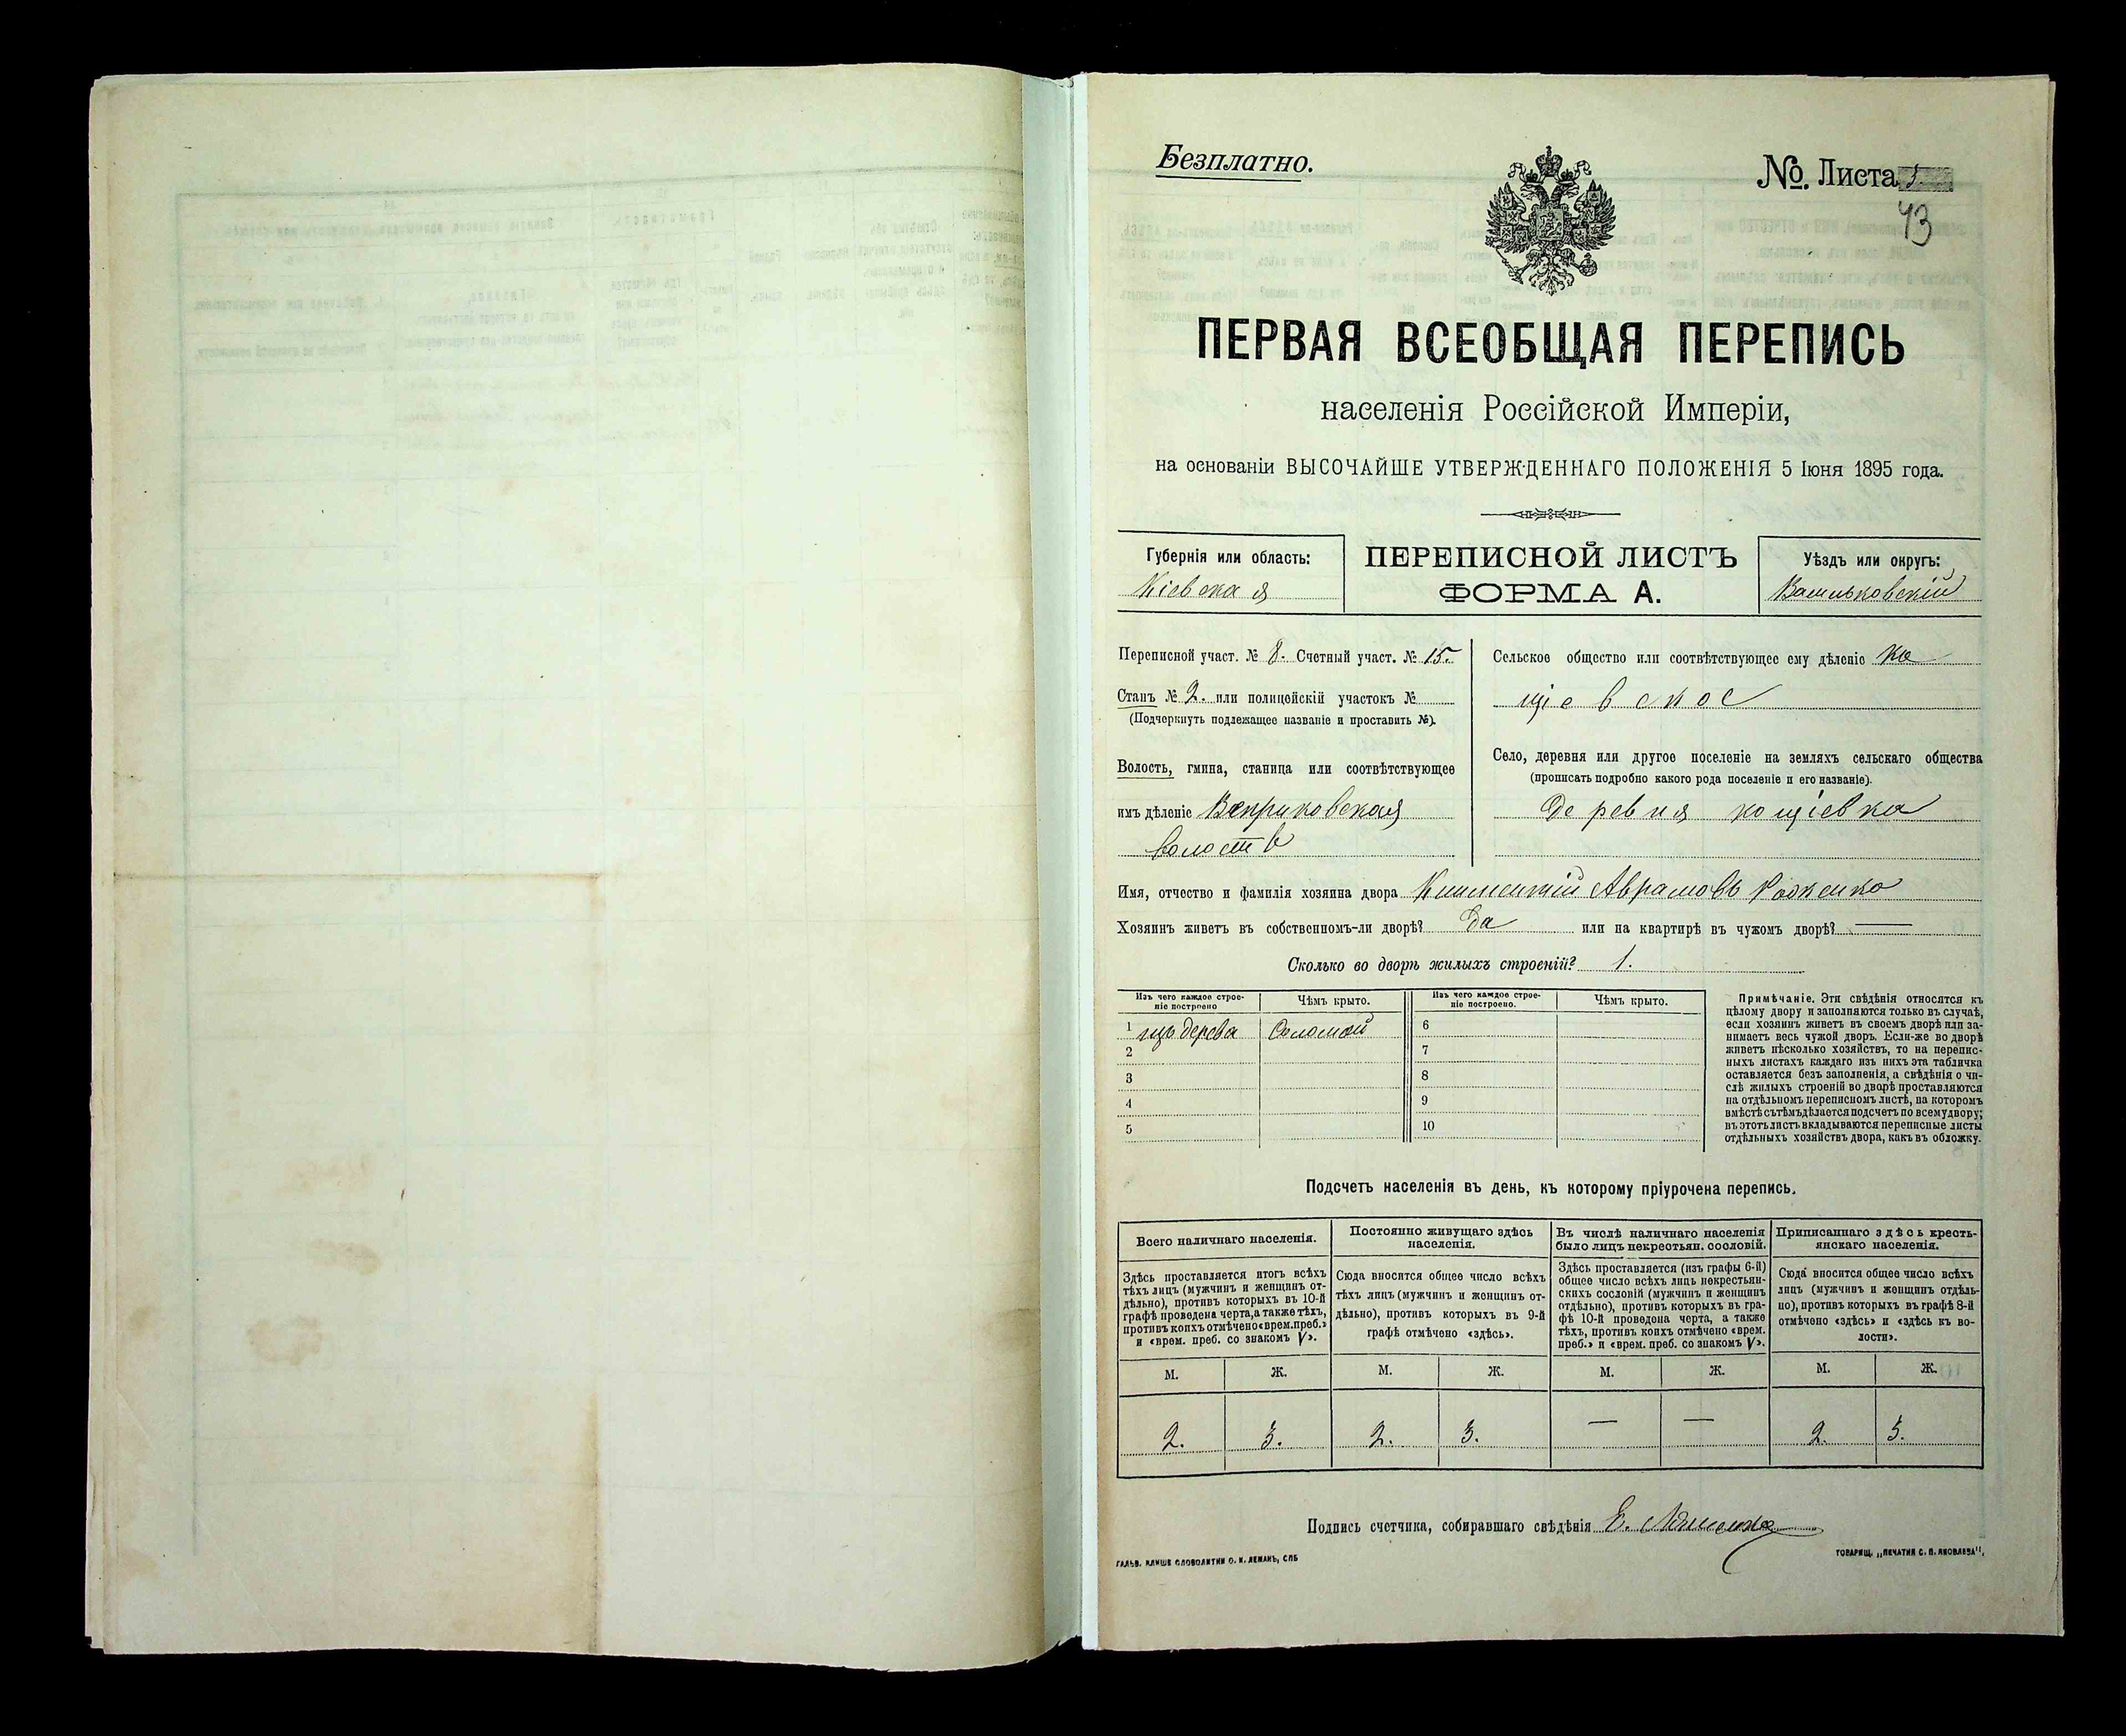 Безплатно.
№ Листа 5.
43
ПЕРВАЯ ВСЕОБЩАЯ ПЕРЕПИСЬ
населенія Россійской Имперіи,
на основаніи ВЫСОЧАЙШЕ УТВЕРЖДЕННАГО ПОЛОЖЕНІЯ 5 Іюня 1895 года.
Губернія или область:
Кіевская
ПЕРЕПИСНОЙ ЛИСТЪ
ФОРМА А.
Уѣздъ или округъ:
Васильковскій
Переписной участ. № 8. Счетный участ. № 15.
Станъ № 2. или полицейскій участокъ №
(Подчеркнуть подлежащее названіе и проставить №).
Волость, гмина, станица или соотвѣтствующее
имъ дѣленіе Веприковская
волость
Сельское общество или соотвѣтствующее ему дѣленіе Ко
щіевское
Село, деревня или другое поселеніе на земляхъ сельскаго общества
(прописать подробно какого рода поселеніе и его названіе).
Деревня кощіевка
Имя, отчество и фамилія хозяина двора Аврамовъ
Хозяинъ живетъ въ собственномъ-ли дворѣ? Да или на квартирѣ въ чужомъ дворѣ? —
Сколько во дворѣ жилыхъ строеній? 1.
Изъ чего каждое строе-
ніе построено
Чѣмъ крыто.
Изъ чего каждое строе-
ніе построено.
Чѣмъ крыто.
1 изъ дерева Соломой
2
3
4
5
6
7
8
9
10
Примѣчаніе. Эти свѣдѣнія относятся къ
цѣлому двору и заполняются только въ случаѣ,
если хозяинъ живетъ въ своемъ дворѣ или за-
нимаетъ весь чужой дворъ. Если-же во дворѣ
живетъ нѣсколько хозяйствъ, то на перепис-
ныхъ листахъ каждаго изъ нихъ эта табличка
оставляется безъ заполненія, а свѣдѣнія о чи-
слѣ жилыхъ строеній во дворѣ проставляются
на отдѣльномъ переписномъ листѣ, на которомъ
вмѣстѣ съ тѣмъ дѣлается подсчетъ по всему двору;
въ этотъ листъ вкладываются переписные листы
отдѣльныхъ хозяйствъ двора, какъ въ обложку.
Подсчетъ населенія въ день, къ которому пріурочена перепись.
Всего наличнаго населенія.
Постоянно живущаго здѣсь
населенія.
Въ числѣ наличнаго населенія
было лицъ некрестьян. сословій.
Приписаннаго здѣсь кресть-
янскаго населенія.
Здѣсь проставляется итогъ всѣхъ
тѣхъ лицъ (мужчинъ и женщинъ от-
дѣльно), противъ которыхъ въ 10-й
графѣ проведена черта, а также тѣхъ,
противъ коихъ отмѣчено «врем. преб.»
и «врем. преб. со знакомъ V».
Сюда вносится общее число всѣхъ
тѣхъ лицъ (мужчинъ и женщинъ от-
дѣльно), противъ которыхъ въ 9-й
графѣ отмѣчено «здѣсь».
Здѣсь проставляется (изъ графы 6-й)
общее число всѣхъ лицъ некрестьян-
скихъ сословій (мужчинъ и женщинъ
отдѣльно), противъ которыхъ въ гра-
фѣ 10-й проведена черта, а также
тѣхъ, противъ коихъ отмѣчено «врем.
преб.» и «врем. преб. со знакомъ V».
Сюда вносится общее число всѣхъ
лицъ (мужчинъ и женщинъ отдѣль-
но), противъ которыхъ въ графѣ 8-й
отмѣчено «здѣсь» и «здѣсь къ во-
лости».
М. Ж. М. Ж. М. Ж. М. Ж.
2. 3. 2. 3. — — 2. 3.
Подпись счетчика, собиравшаго свѣдѣнія
ГАЛЬВ. КЛИШЕ СЛОВОЛИТНИ О. И. ЛЕМАНЪ, СПБ
ТОВАРИЩ. „ПЕЧАТНЯ С. П. ЯКОВЛЕВА“.